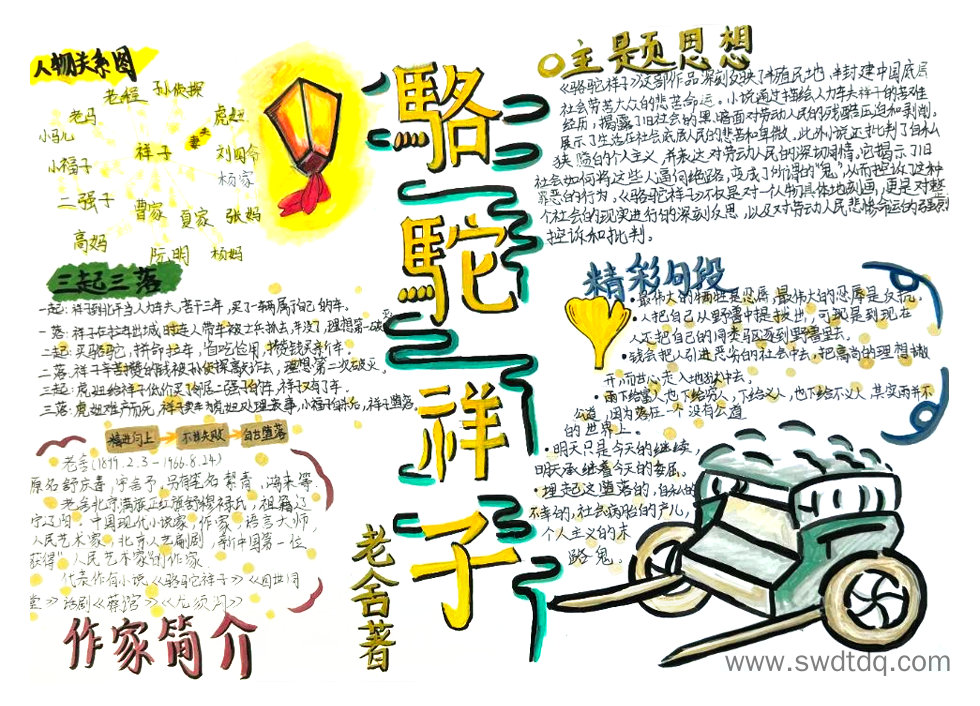 人物关系图
老程 孙侦探
老马 虎妞
小马儿 祥子 车夫 刘四爷
小福子 杨家
二强子 曹家 夏家 张妈
高妈 阮明 杨妈
三起三落
一起：祥子到北平当人力车夫，苦干三年，买了一辆属于自己的车。
一落：祥子在拉车出城时连人带车被士兵抓去，车没了，理想第一次破灭
二起：卖骆驼，拼命拉车，省吃俭用，攒钱买新车。
二落：祥子辛苦攒的钱被孙侦探敲诈去，理想第二次破灭。
三起：虎妞给祥子低价买了邻居二强子的车，祥子又有了车。
三落：虎妞难产而死，祥子卖车为虎妞处理丧事，小福子死后，祥子堕落。
积进向上 不甘失败 自甘堕落
老舍(1899.2.3-1966.8.24)
原名舒庆春，字舍予，另有笔名絜青、鸿来等
老舍北京满族正红旗舒穆禄氏，祖籍辽
宁辽内。中国现代小说家、作家、语言大师、
人民艺术家、北京人艺编剧，新中国第一位
获得"人民艺术家"的作家
代表作有小说《骆驼祥子》《四世同
堂》话剧《茶馆》《龙须沟》
作家简介
駱駝祥子
老舍著
主题思想
《骆驼祥子》这部作品深刻反映了半殖民地、半封建中国底层
社会劳苦大众的悲苦命运。小说通过描绘人力车夫祥子的苦难
经历，揭露了旧社会的黑暗面对劳动人民的残酷压迫和剥削，
展示了生活在社会底层人民的悲苦和卑微。此外小说还批判了自私
狭隘的个人主义，并表达对劳动人民的深切同情，它揭示了旧
社会如何将这些人逼向绝路，变成了所谓的"鬼"，从而控诉了这种
罪恶的行为。《骆驼祥子》不仅是对一个人物具体地刻画，更是对整
个社会的现实进行的深刻反思，以及对劳动人民悲惨命运的强烈
控诉和批判。
精彩句段
•最伟大的牺牲是忍辱，最伟大的忍辱是反抗。
•人把自己从野兽中提拔出，可那是到现在
人还把自己的同类驱逐到野兽里去。
•钱会把人引进恶劣的社会中去，把高尚的理想撇
开，而甘心走入地狱中去。
•雨下给富人，也下给穷人，下给义人，也下给不义人，其实雨并不
公道，因为落在一个没有公道
的世界上。
•明天只是今天的继续，
明天承继着今天的委屈。
•埋起这堕落的，自私的
不幸的，社会病胎的产儿，
个人主义的末
路鬼。
www.swdtdq.com